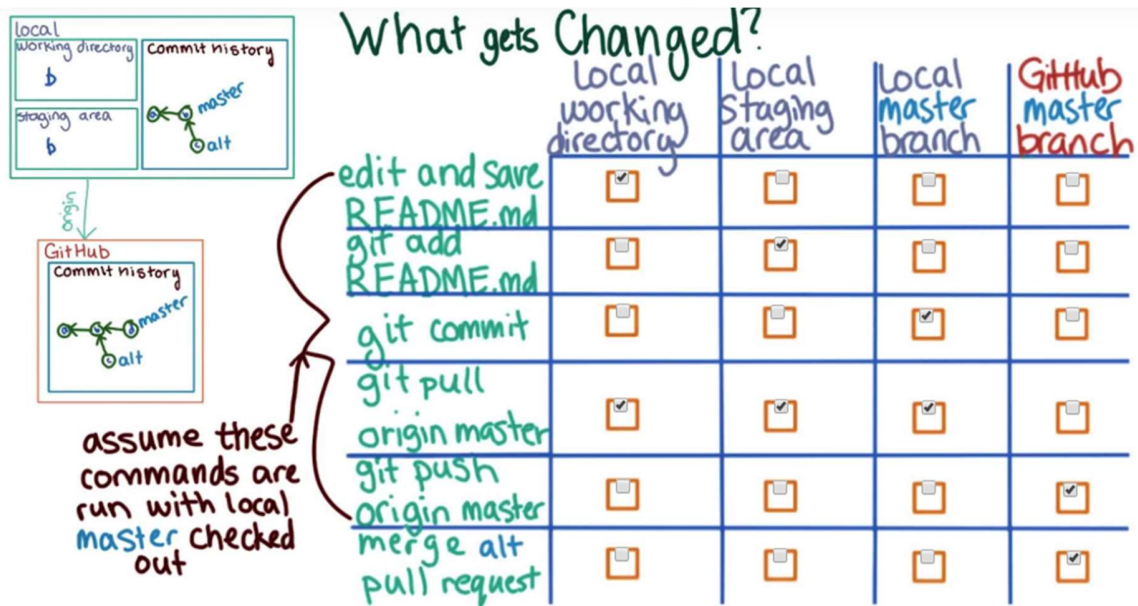 What gets Changed?
local
working directory
b
staging area
b
Commit history
master
alt
origin
GitHub
Commit history
master
alt
assume these
commands are
run with local
master checked
out
Local
working
directory
Local
Staging
area
Local
master
branch
GitHub
master
branch
edit and save
README.md
git add
README.md
git commit
git pull
origin master
git push
origin master
merge alt
pull request